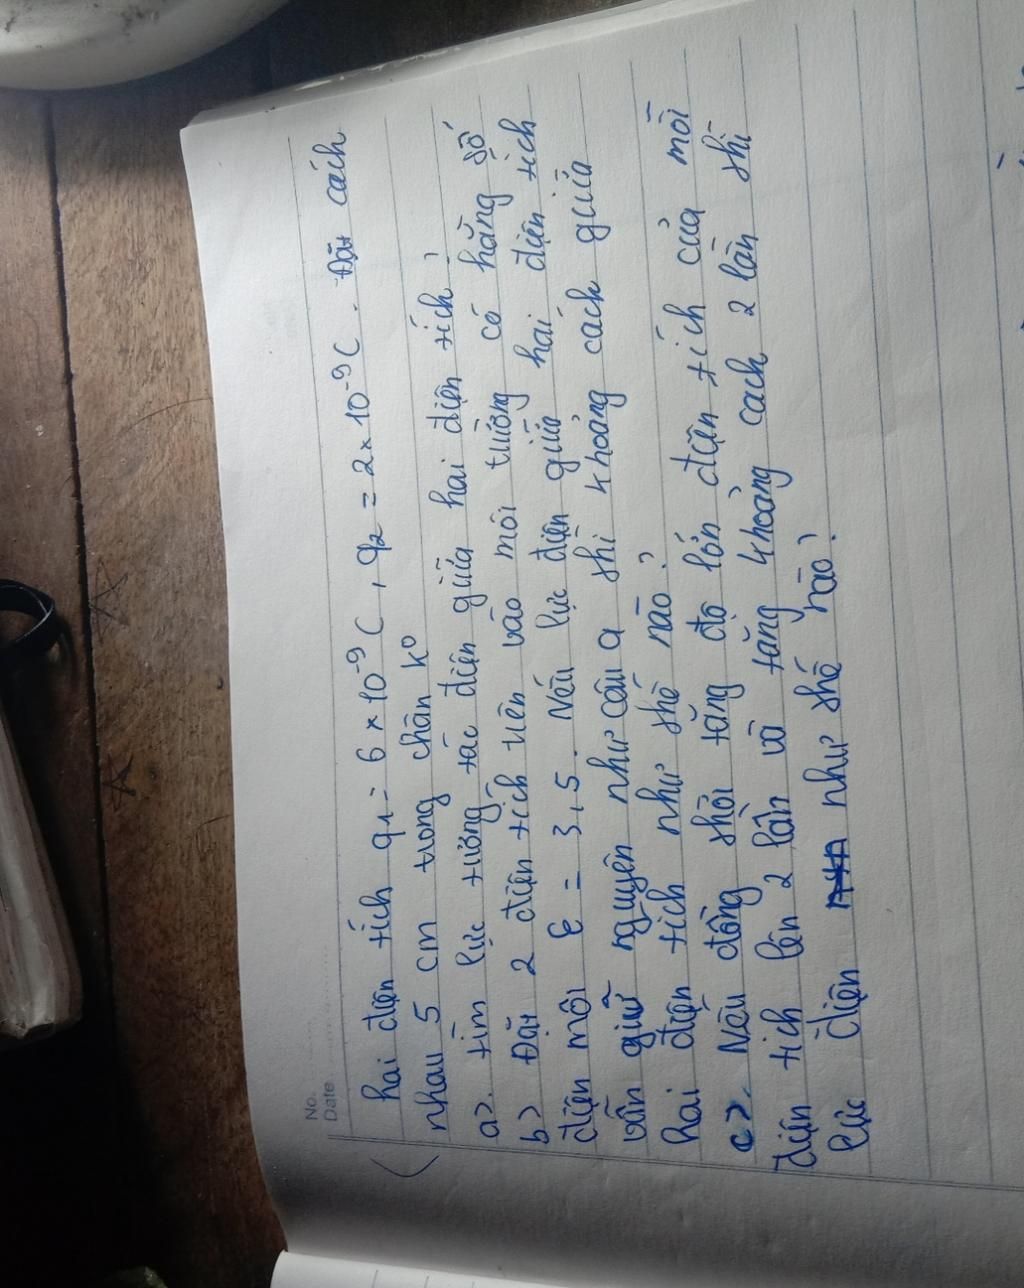 No.
Date
hai điện tích q1 = 6 × 10⁻⁹ C , q2 = 2 × 10⁻⁹ C . Đặt cách
nhau 5 cm trong chân k⁰
a>. tìm lực tương tác điện giữa hai điện tích ?
b> Đặt 2 điện tích trên vào môi trường có hằng số
điện môi ε = 3,5 . Nếu lực điện giữa hai điện tích
vẫn giữ nguyên như câu a thì khoảng cách giữa
hai điện tích như thế nào ?
c>. Nếu đồng thời tăng độ lớn điện tích của mỗi
điện tích lên 2 lần và tăng khoảng cach 2 lần thì
lực điện như thế nào ?